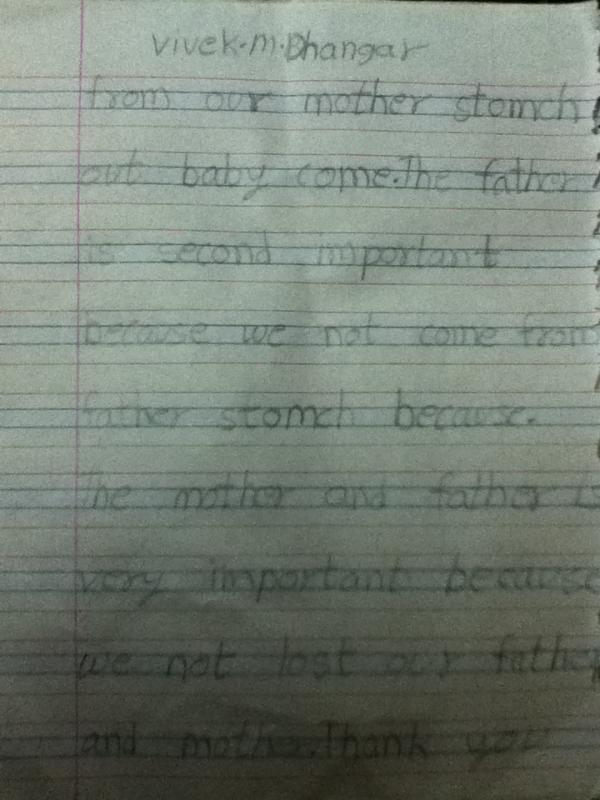 vivek.m.Dhangar
from our mother stomch
out baby come.The father
is second important
because we not come from
father stomch because.
The mother and father is
very important because
we not lost our father
and mother.Thank you